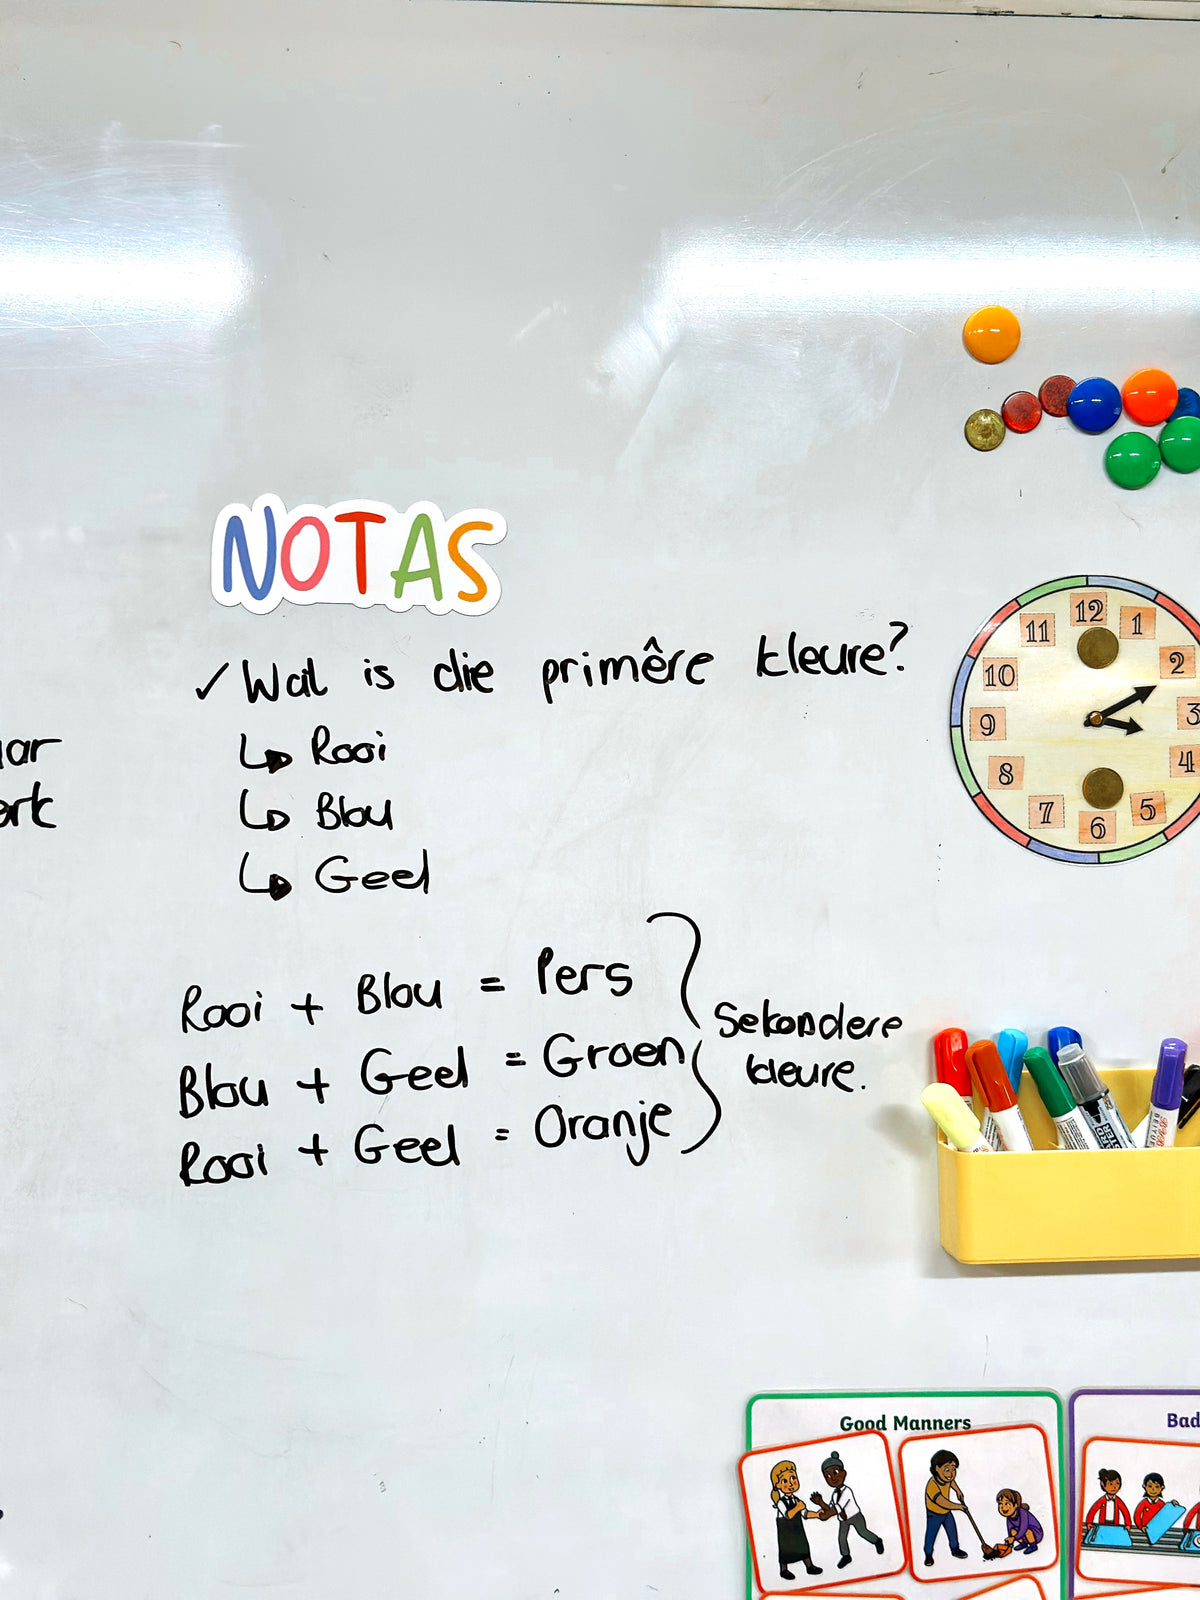 NOTAS
✓ Wat is die primêre kleure?
↳ Rooi
↳ Blou
↳ Geel
Rooi + Blou = Pers
Blou + Geel = Groen
Rooi + Geel = Oranje
Sekondere
kleure.
12
1
2
3
4
5
6
7
8
9
10
11
Good Manners
Bad